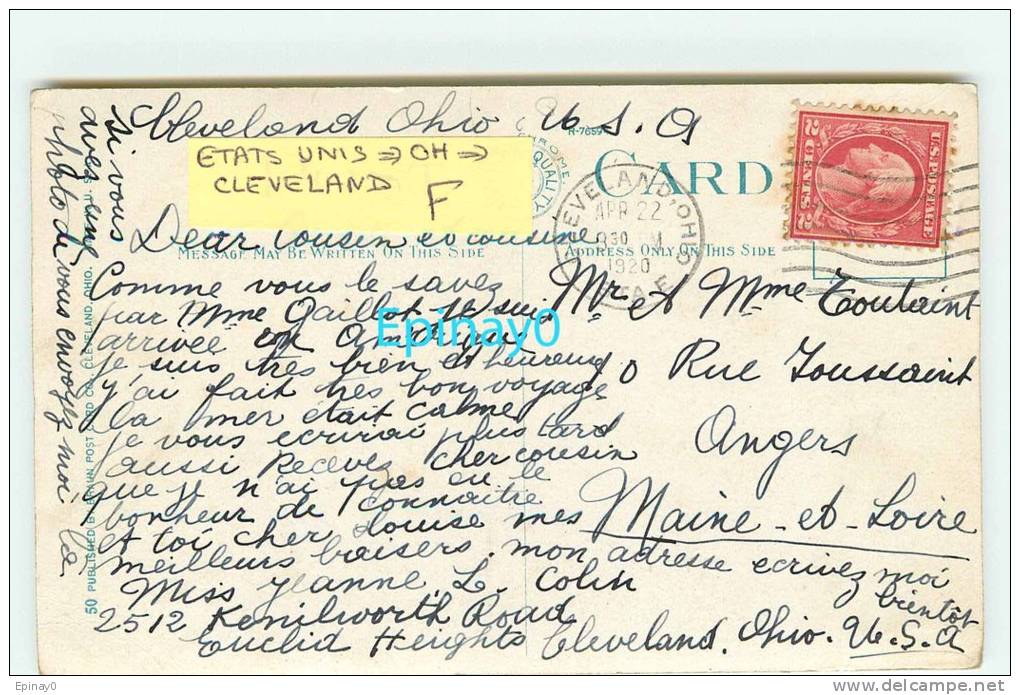 Cleveland Ohio U.S.A
R-7659
ETATS UNIS ⇒ OH ⇒
CLEVELAND
F
CHROME
QUALITY
CARD
CLEVELAND, OHIO
APR 22
30 PM
1920
STA. E.
U.S. POSTAGE
2 CENTS 2
Dear Cousin et cousine
MESSAGE MAY BE WRITTEN ON THIS SIDE
ADDRESS ONLY ON THIS SIDE
Comme vous le savez
par Mme Gaillot je suis
arrivée en Amérique
je suis très bien et heureuse
j'ai fait très bon voyage
la mer était calme
je vous ecrirai plus tard
aussi Recevez cher cousin
que je n'ai pas eu le
bonheur de connaitre
et toi cher Louise mes
meilleurs baisers. mon adresse ecrivez moi
bientôt
Miss Jeanne L. Colin
2512 Kenilworth Road
Euclid Heights Cleveland. Ohio. U.S.A
Mr et Mme Toutaint
Rue Toussaint
Angers
Maine-et-Loire
si vous
avez une
photo de vous envoyez moi la
50 PUBLISHED BY BRAUN POST CARD CO. CLEVELAND, OHIO.
Epinay0
Epinay0
www.delcampe.net